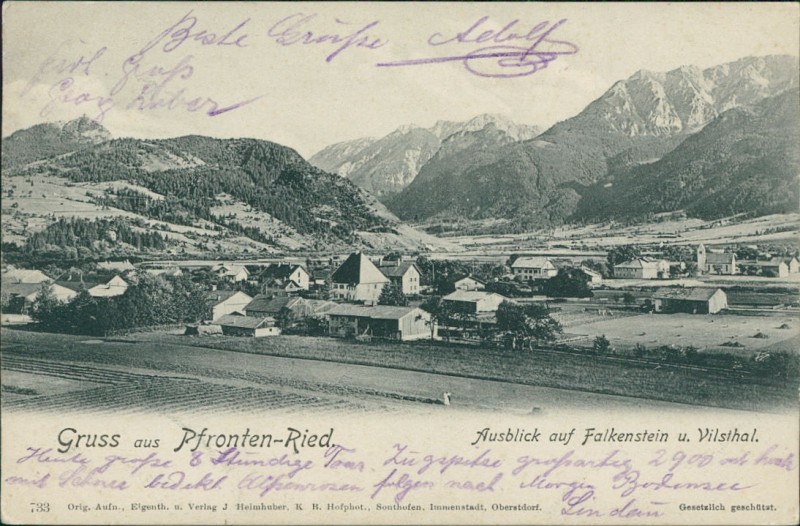 Beste Grüsse Adolf
Georg
Gruss aus Pfronten-Ried.
Ausblick auf Falkenstein u. Vilsthal.
Heute große 8 Stündige Tour. Zugspitze großartig 2900 mtr hoch
mit Schnee bedekt. Alpenrosen folgen nach. Morgen Bodensee
Lindau
733 Orig. Aufn., Eigenth. u. Verlag J Heimhuber. K. B. Hofphot., Sonthofen, Immenstadt, Oberstdorf.
Gesetzlich geschützt.